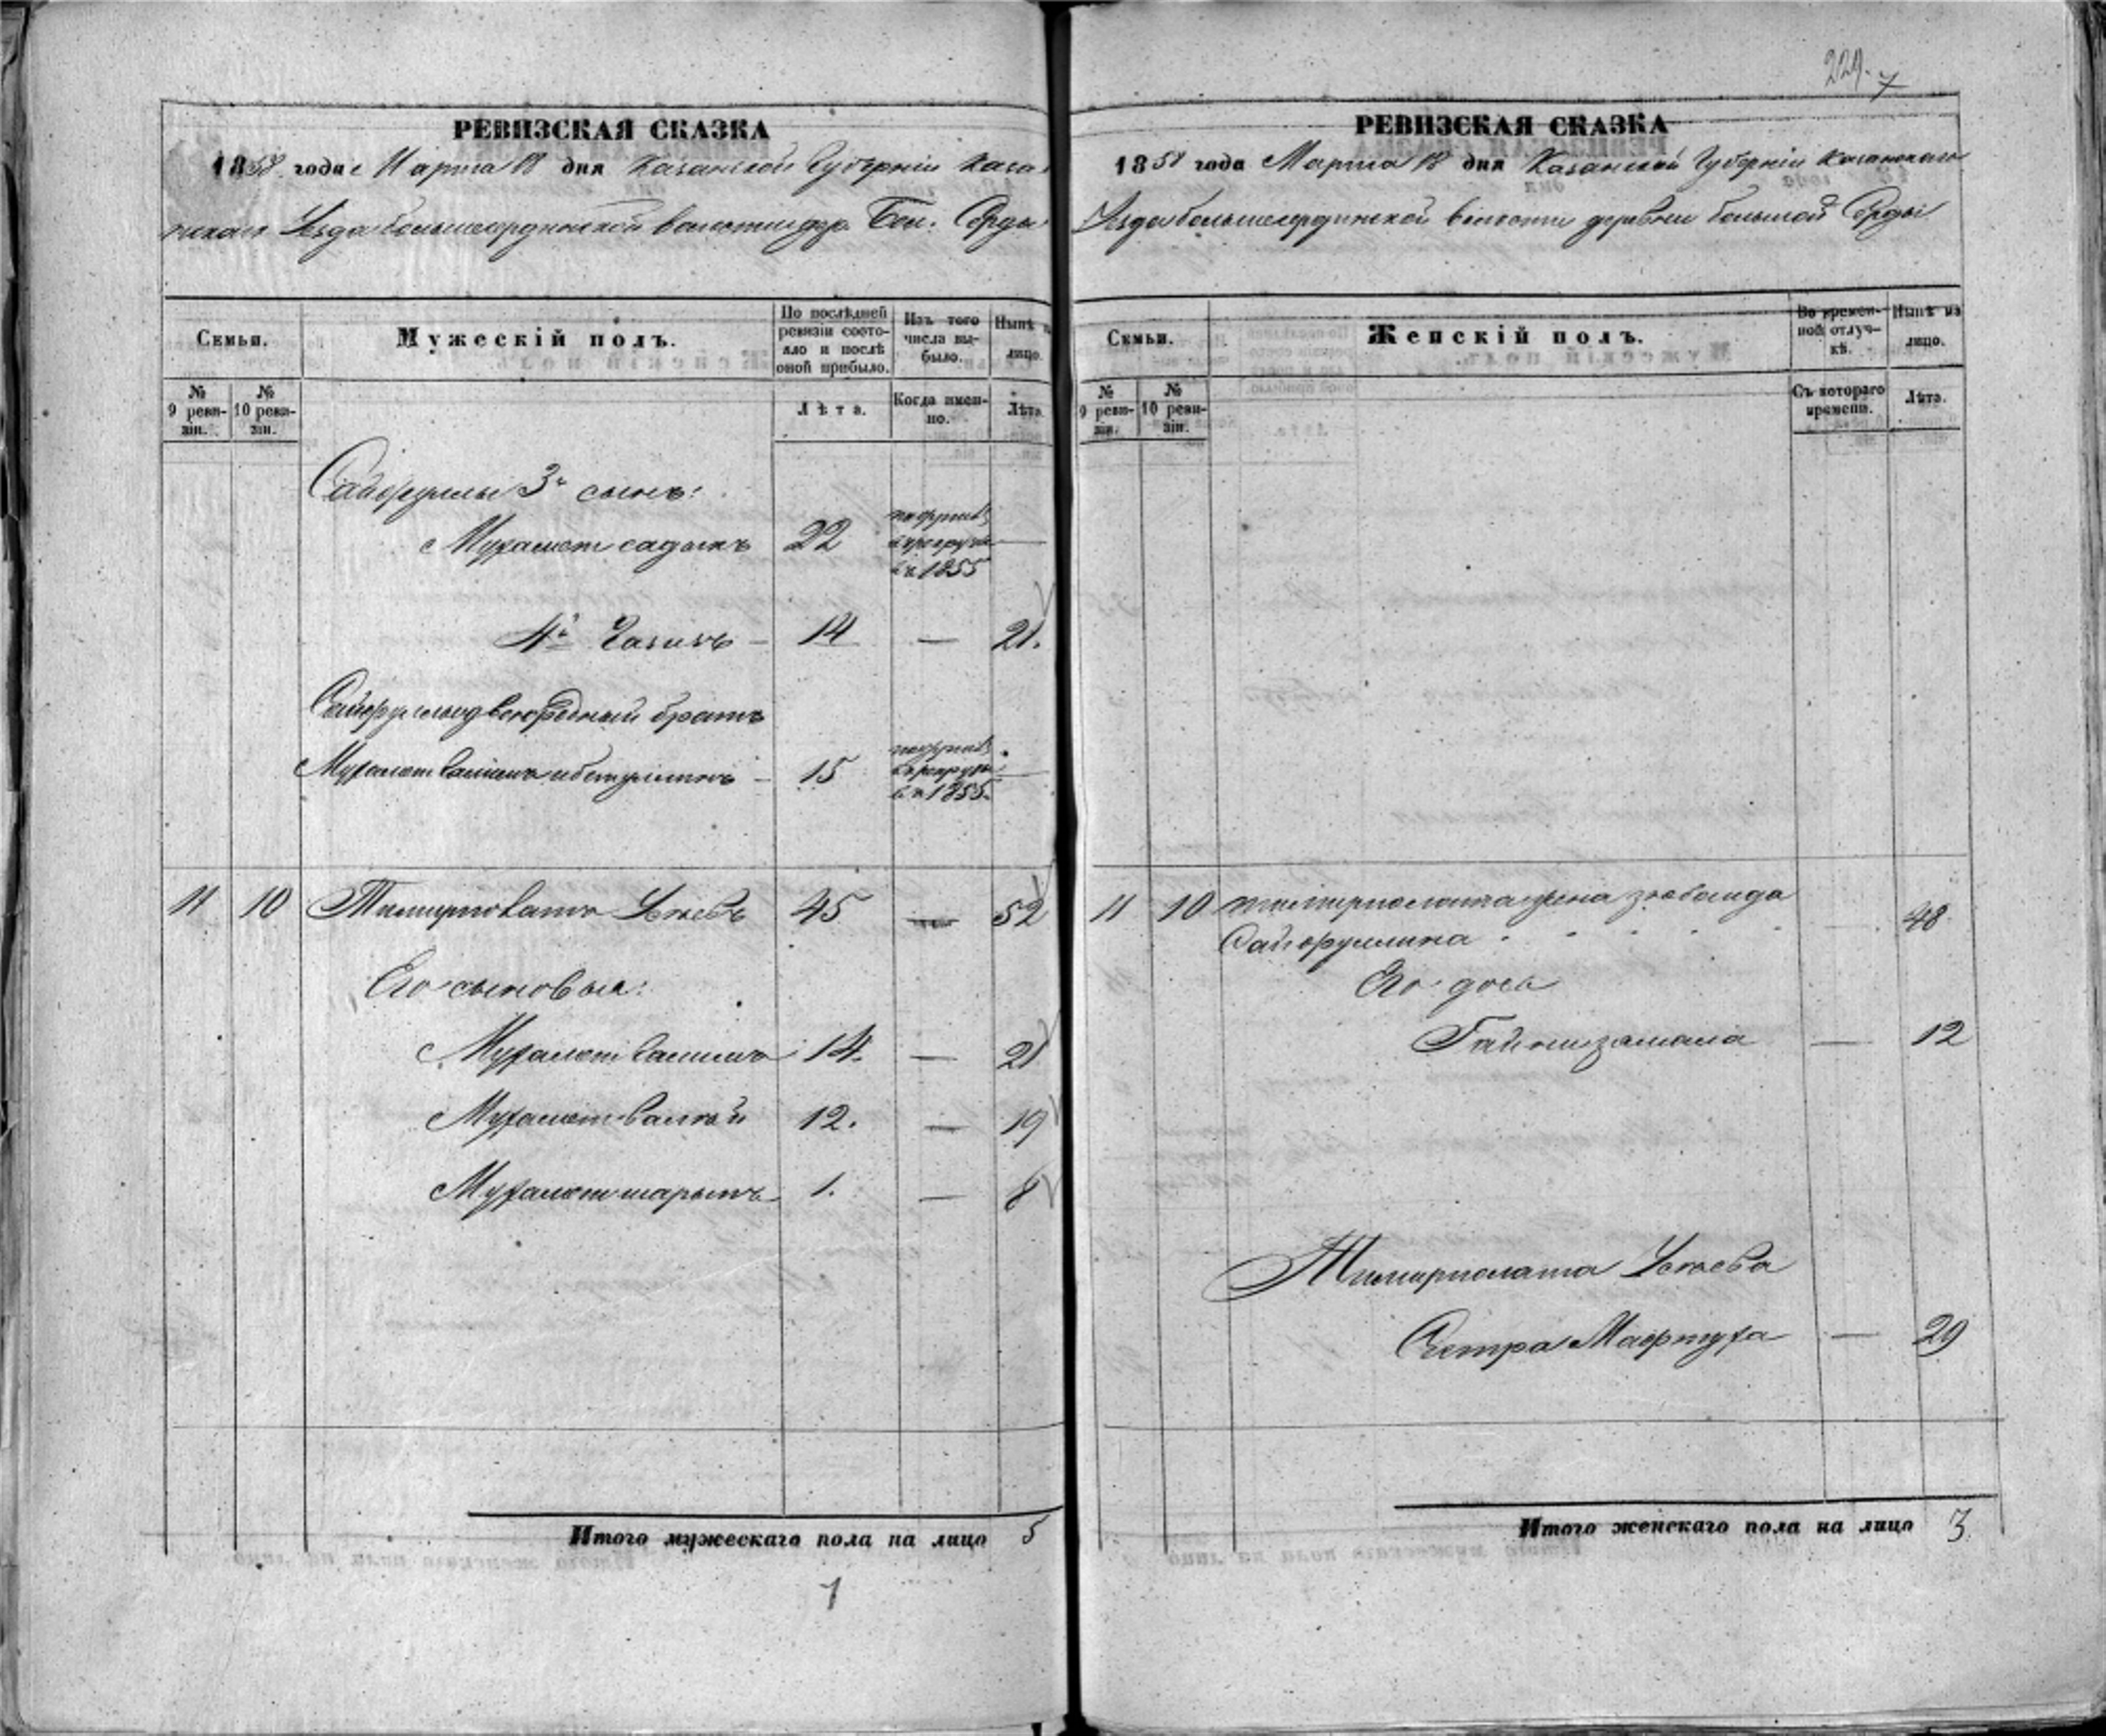 229.
7
РЕВИЗСКАЯ СКАЗКА
1858 года Марта 18 дня Казанской Губерніи Казан
скаго Уезда большесердинской волости дер. Бол. Серды
Семьи.
Мужескій полъ.
По послѣдней ревизіи состояло и послѣ оной прибыло.
Изъ того числа выбыло.
Нынѣ на лицо.
№ 9 ревизіи.
№ 10 ревизіи.
Лѣта.
Когда именно.
Лѣта.
Сайфуллы 3й сынъ:
Мухаметсадыкъ 22 — въ 1855
4й 14 — 21.
Сайфуллы двоюродный братъ
Мухамет 15 — въ 1855.
11 10 45 — 52
Его сыновья:
Мухаметвалимъ 14. — 21
Мухаметвалей 12. — 19
Мухаметшарыпъ 1. — 8
Итого мужескаго пола на лицо 5
1
РЕВИЗСКАЯ СКАЗКА
1858 года Марта 18 дня Казанской Губерніи Казанскаго
Уезда большесердинской волости деревни большой Серды
Семьи.
Женскій полъ.
Во временной отлучкѣ.
Нынѣ на лицо.
№ 9 ревизіи.
№ 10 ревизіи.
Съ котораго времени.
Лѣта.
11 10 жена зюбаида
Сайфуллина 48.
Его дочь
Гайнизямала — 12
Тимирполата
Сестра Мафтуха — 29
Итого женскаго пола на лицо 3.